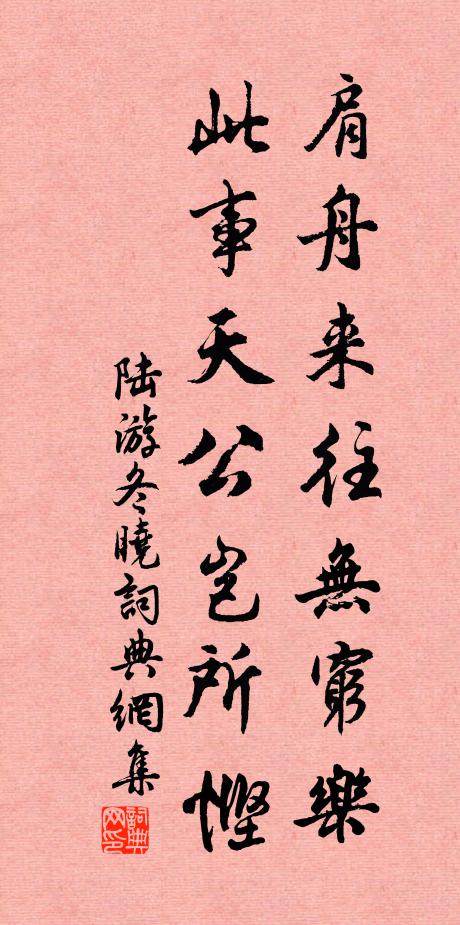 肩舟来往無窮樂
此事天公豈所慳
陸游冬曉詞典網集
詞典网印